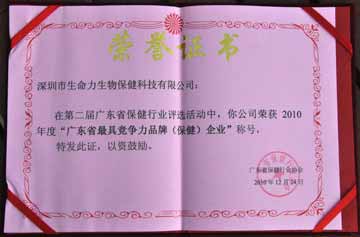 荣誉证书
深圳市生命力生物保健科技有限公司：
在第二届广东省保健行业评选活动中，你公司荣获 2010
年度“广东省最具竞争力品牌（保健）企业”称号，
特发此证，以资鼓励。
广东省保健行业协会
2010 年 12 月 24 日